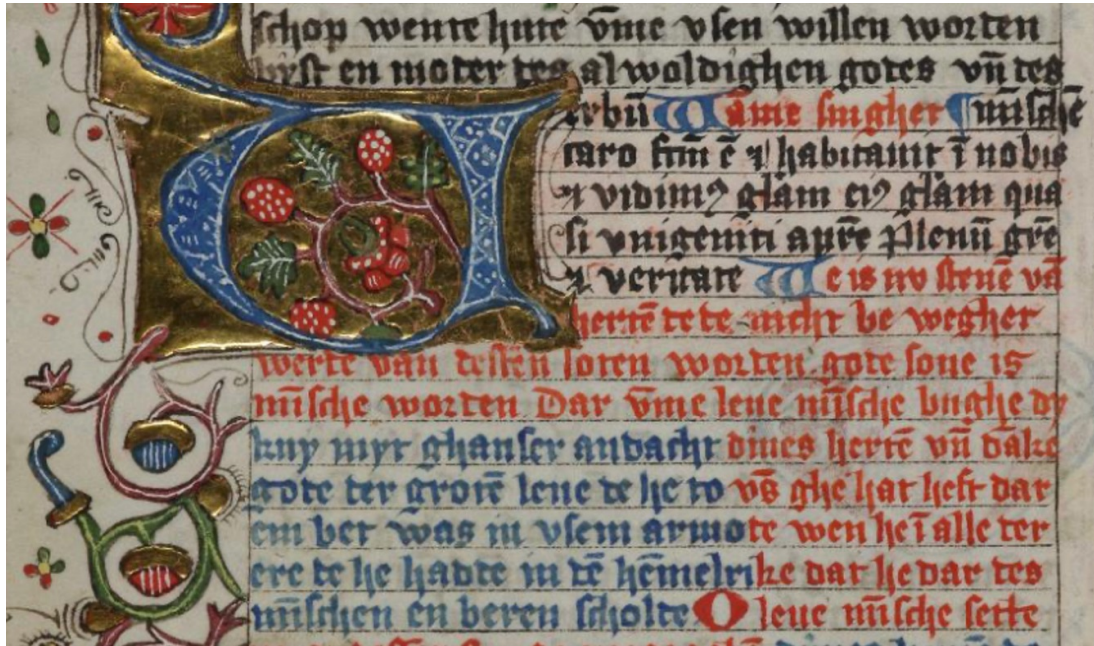 schop wente hute v̄me vsen willen worten
byst en moter tes al woldighen gotes vn̄ tes
Verbū Wāme singhet mīschē
caro ftm̄ ē ⁊ habitauit ī nobis
⁊ vidimꝰ glām eiꝰ glām qua
si vnigeniti apr̄e Plenū gr̄e
⁊ veritate We is nv stenē vā
herten te te nicht be weghet
werte van tessen soten worten gote sone is
mīsche worten Dar v̄me leue mīsche bughe dy
kny myt ghanser andacht dines hertē vn̄ dāke
gote ter grotē leue te he to vs̄ ghe hat heft dar
em bet was in vsem armote wen he ī alle ter
ere te he hadte in tē hēmelrike dat he dar tes
mīschen en beren scholte O leue mīsche sette